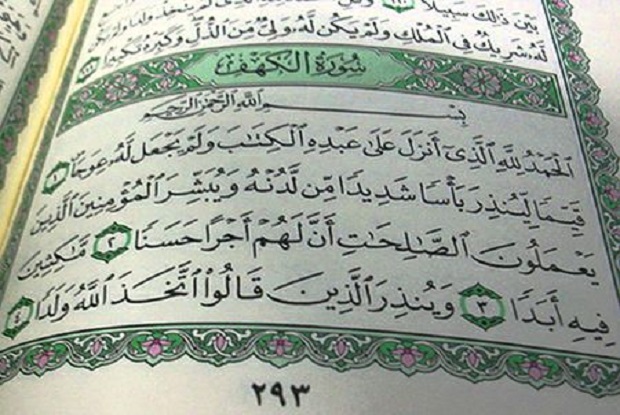 بَيْنَ ذَٰلِكَ سَبِيلًا ١١٠
لَّهُۥ شَرِيكٌ فِى ٱلْمُلْكِ وَلَمْ يَكُن لَّهُۥ وَلِىٌّ مِّنَ ٱلذُّلِّ وَكَبِّرْهُ تَكْبِيرًا ١١١
سُورَةُ الكَهْفِ
بِسْمِ ٱللَّهِ ٱلرَّحْمَٰنِ ٱلرَّحِيمِ
ٱلْحَمْدُ لِلَّهِ ٱلَّذِىٓ أَنزَلَ عَلَىٰ عَبْدِهِ ٱلْكِتَٰبَ وَلَمْ يَجْعَل لَّهُۥ عِوَجَا ١
قَيِّمًا لِّيُنذِرَ بَأْسًا شَدِيدًا مِّن لَّدُنْهُ وَيُبَشِّرَ ٱلْمُؤْمِنِينَ ٱلَّذِينَ
يَعْمَلُونَ ٱلصَّٰلِحَٰتِ أَنَّ لَهُمْ أَجْرًا حَسَنًا ٢ مَّٰكِثِينَ
فِيهِ أَبَدًا ٣ وَيُنذِرَ ٱلَّذِينَ قَالُوا۟ ٱتَّخَذَ ٱللَّهُ وَلَدًا ٤
٢٩٣